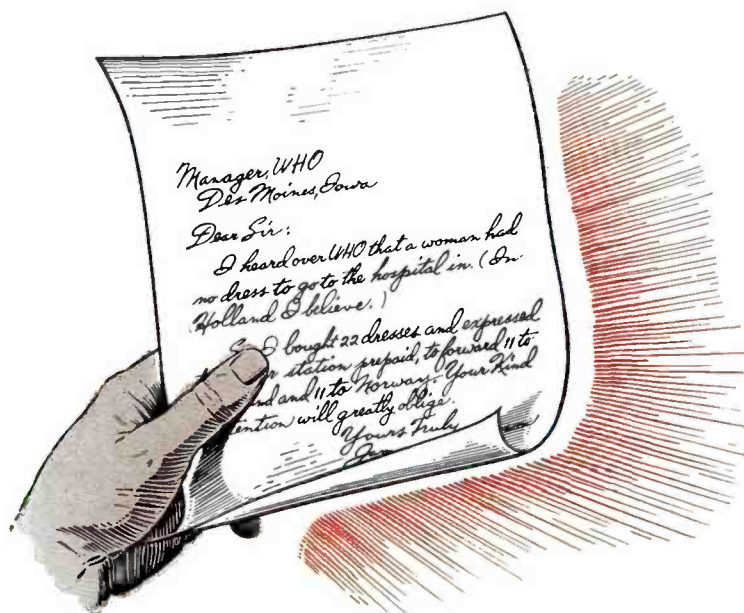 Manager, WHO
Des Moines, Iowa
Dear Sir:
I heard over WHO that a woman had
no dress to go to the hospital in. (In
Holland I believe.)
I bought 22 dresses and expressed
station prepaid, to forward 11 to
and 11 to Norway. Your Kind
will greatly oblige.
Yours Truly